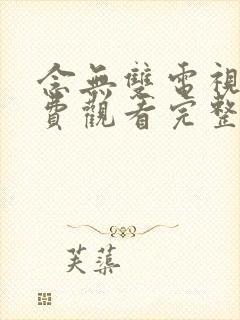 念無雙電視
費觀看完整
芙蕖